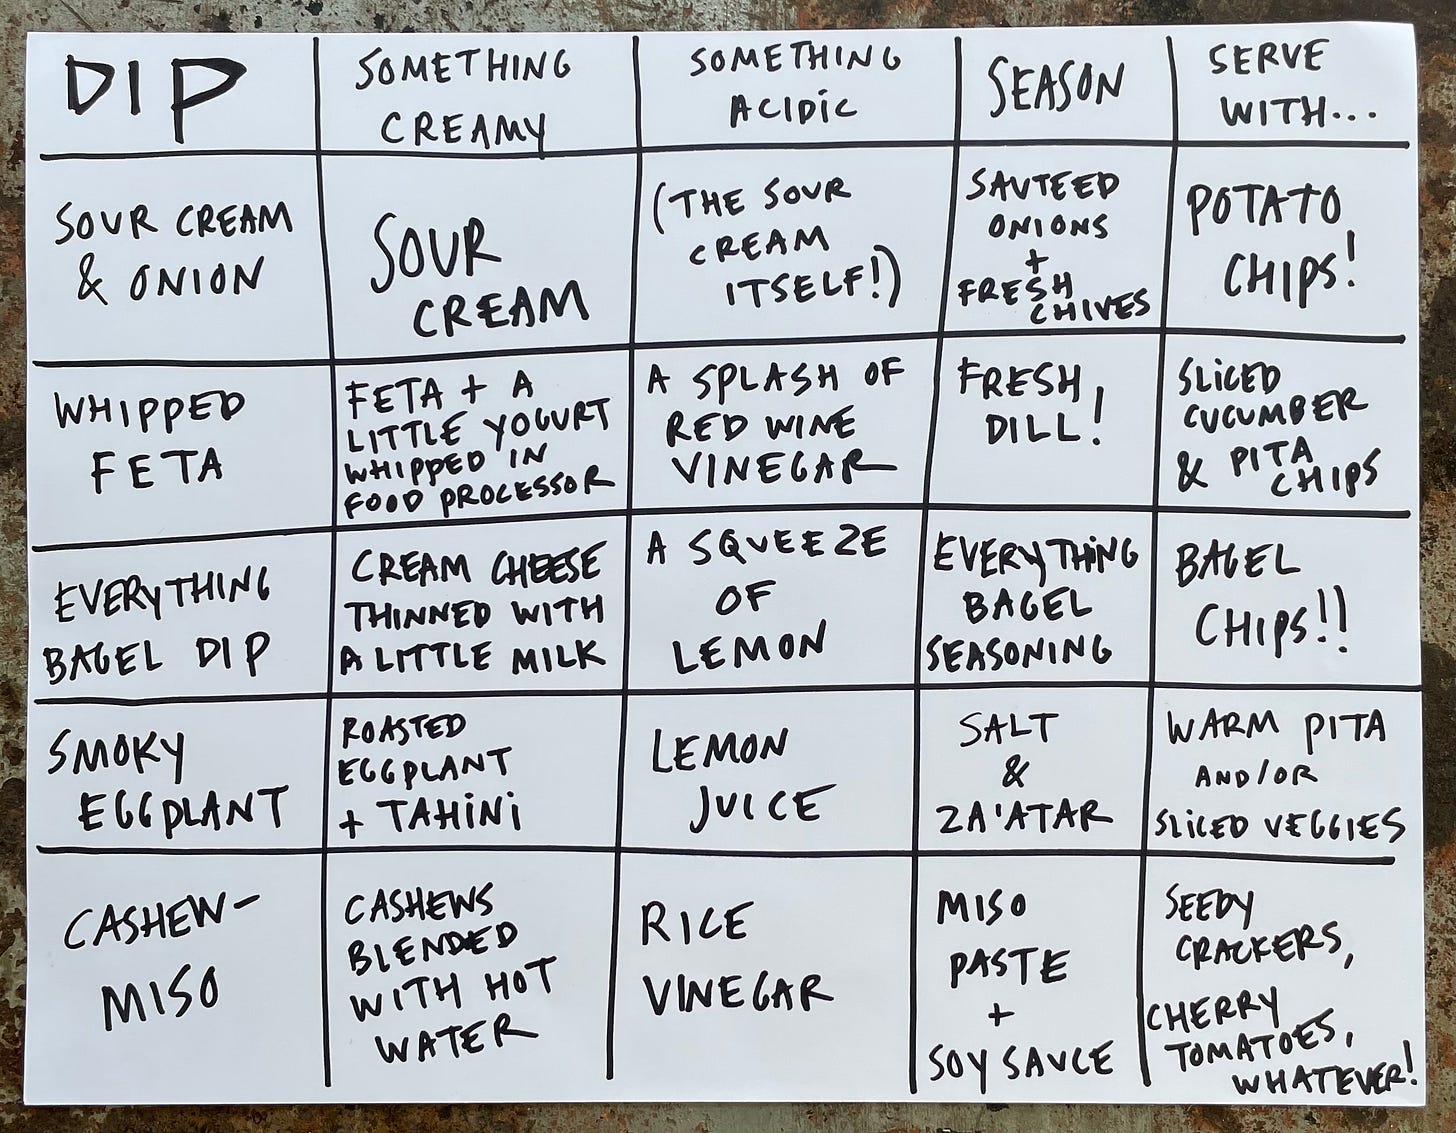 DIP
SOMETHING
CREAMY
SOMETHING
ACIDIC
SEASON
SERVE
WITH...
SOUR CREAM
& ONION
SOUR
CREAM
(THE SOUR
CREAM
ITSELF!)
SAUTEED
ONIONS
+
FRESH
CHIVES
POTATO
CHIPS!
WHIPPED
FETA
FETA + A
LITTLE YOGURT
WHIPPED IN
FOOD PROCESSOR
A SPLASH OF
RED WINE
VINEGAR
FRESH
DILL!
SLICED
CUCUMBER
& PITA
CHIPS
EVERYTHING
BAGEL DIP
CREAM CHEESE
THINNED WITH
A LITTLE MILK
A SQUEEZE
OF
LEMON
EVERYTHING
BAGEL
SEASONING
BAGEL
CHIPS!!
SMOKY
EGGPLANT
ROASTED
EGGPLANT
+ TAHINI
LEMON
JUICE
SALT
&
ZA'ATAR
WARM PITA
AND/OR
SLICED VEGGIES
CASHEW-
MISO
CASHEWS
BLENDED
WITH HOT
WATER
RICE
VINEGAR
MISO
PASTE
+
SOY SAUCE
SEEDY
CRACKERS,
CHERRY
TOMATOES,
WHATEVER!